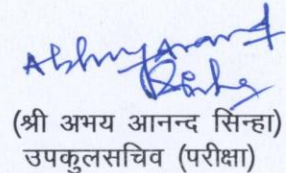 Abhay Anand
Sinha
(श्री अभय आनन्द सिन्हा)
उपकुलसचिव (परीक्षा)